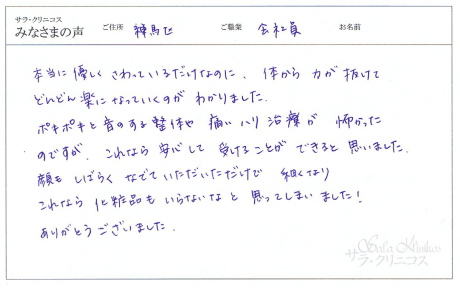 サラ・クリニコス
みなさまの声 ご住所 練馬区 ご職業 会社員 お名前
本当に優しくさわっているだけなのに、体から力が抜けて
どんどん楽になっていくのがわかりました。
ポキポキと音のする整体や痛いハリ治療が怖かった
のですが、これなら安心して受けることができると思いました。
顔もしばらくなでていただいただけで細くなり
これなら化粧品もいらないなと思ってしまいました!
ありがとうございました。
Sala Klinikos
サラ・クリニコス